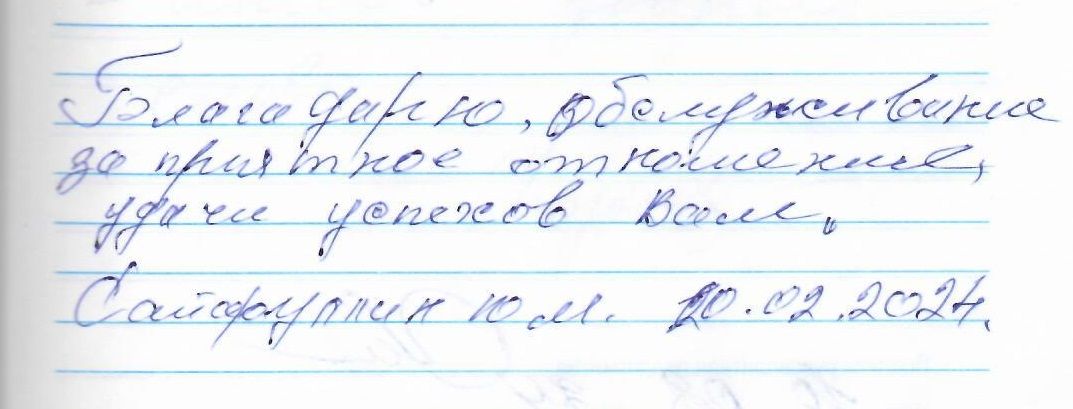 Благадарю, обслуживание
за приятное отношение,
удачи успехов Вам.
Сайфуллин Ю.М. 20.02.2024.